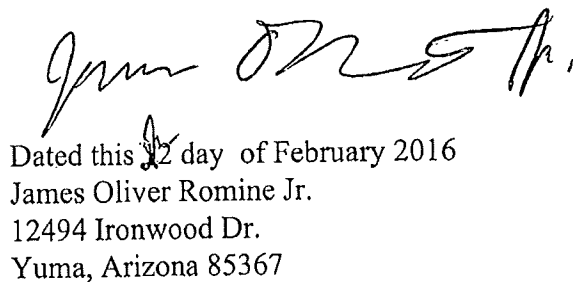 Dated this 12 day of February 2016
James Oliver Romine Jr.
12494 Ironwood Dr.
Yuma, Arizona 85367